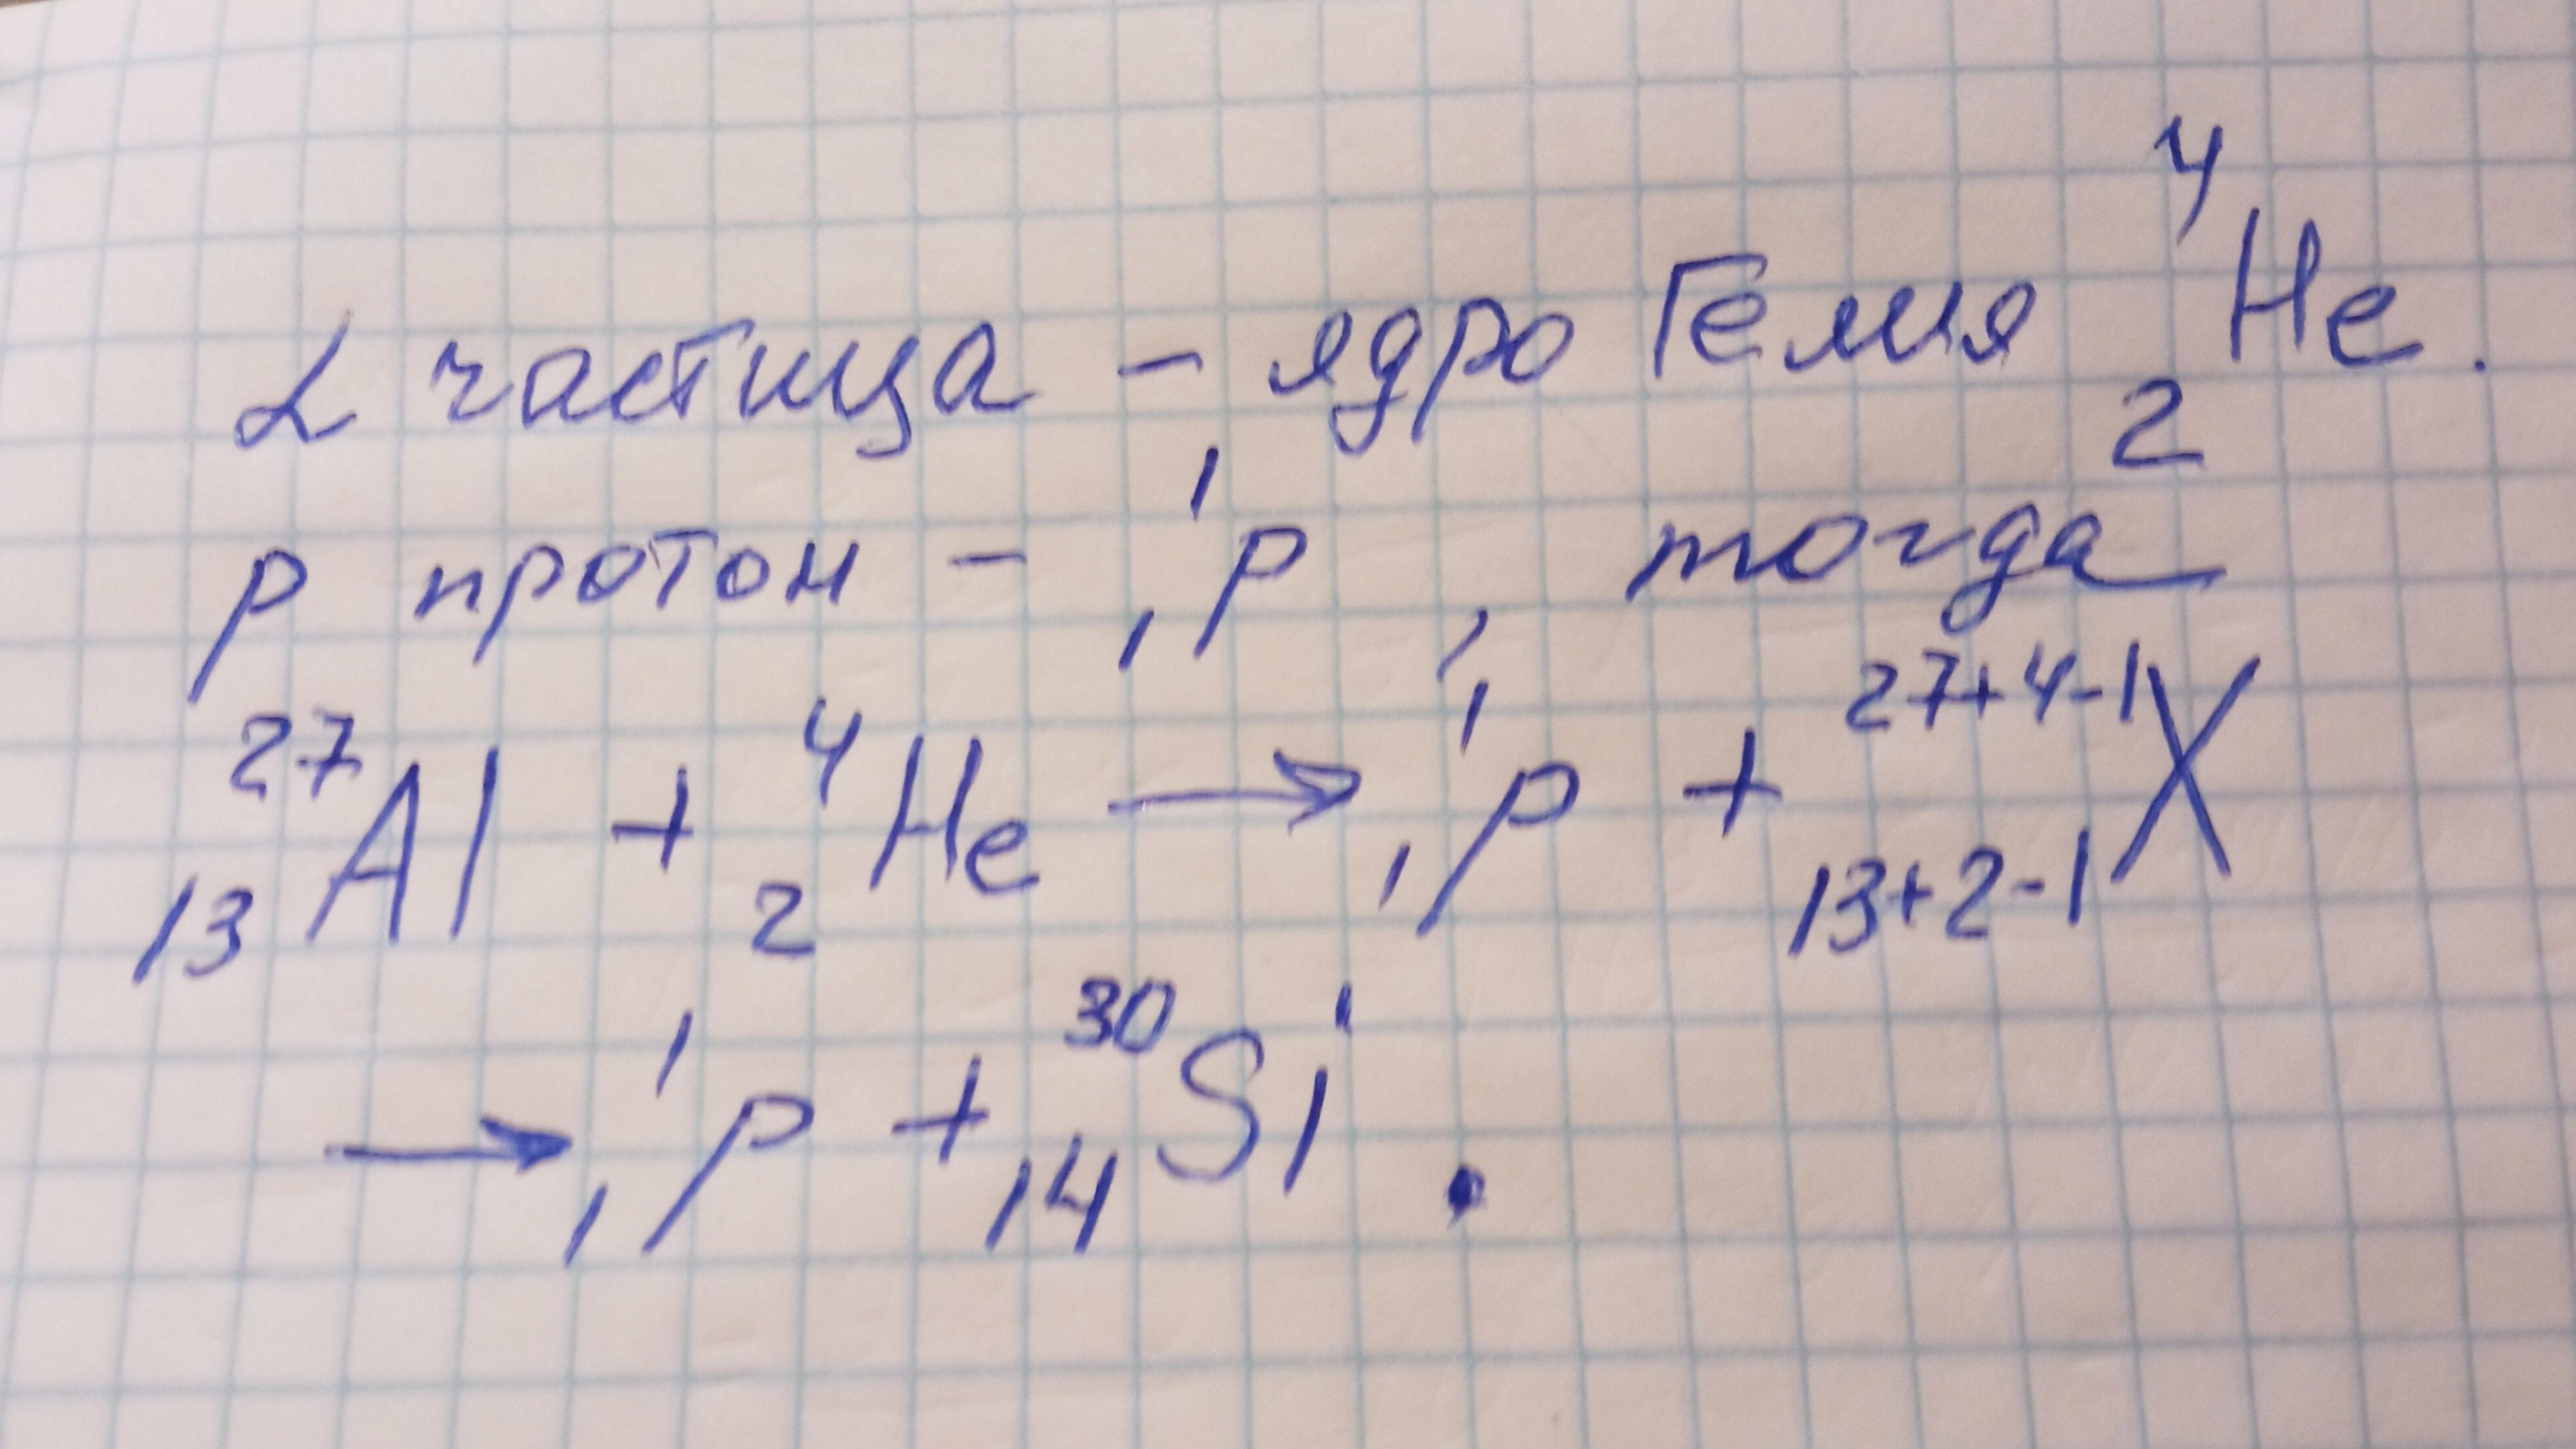 α частица – ядро Гелия ⁴₂He.
p протон – ¹₁p, тогда
²⁷₁₃Al + ⁴₂He → ¹₁p + ²⁷⁺⁴⁻¹₁₃₊₂₋₁X
→ ¹₁p + ³⁰₁₄Si.